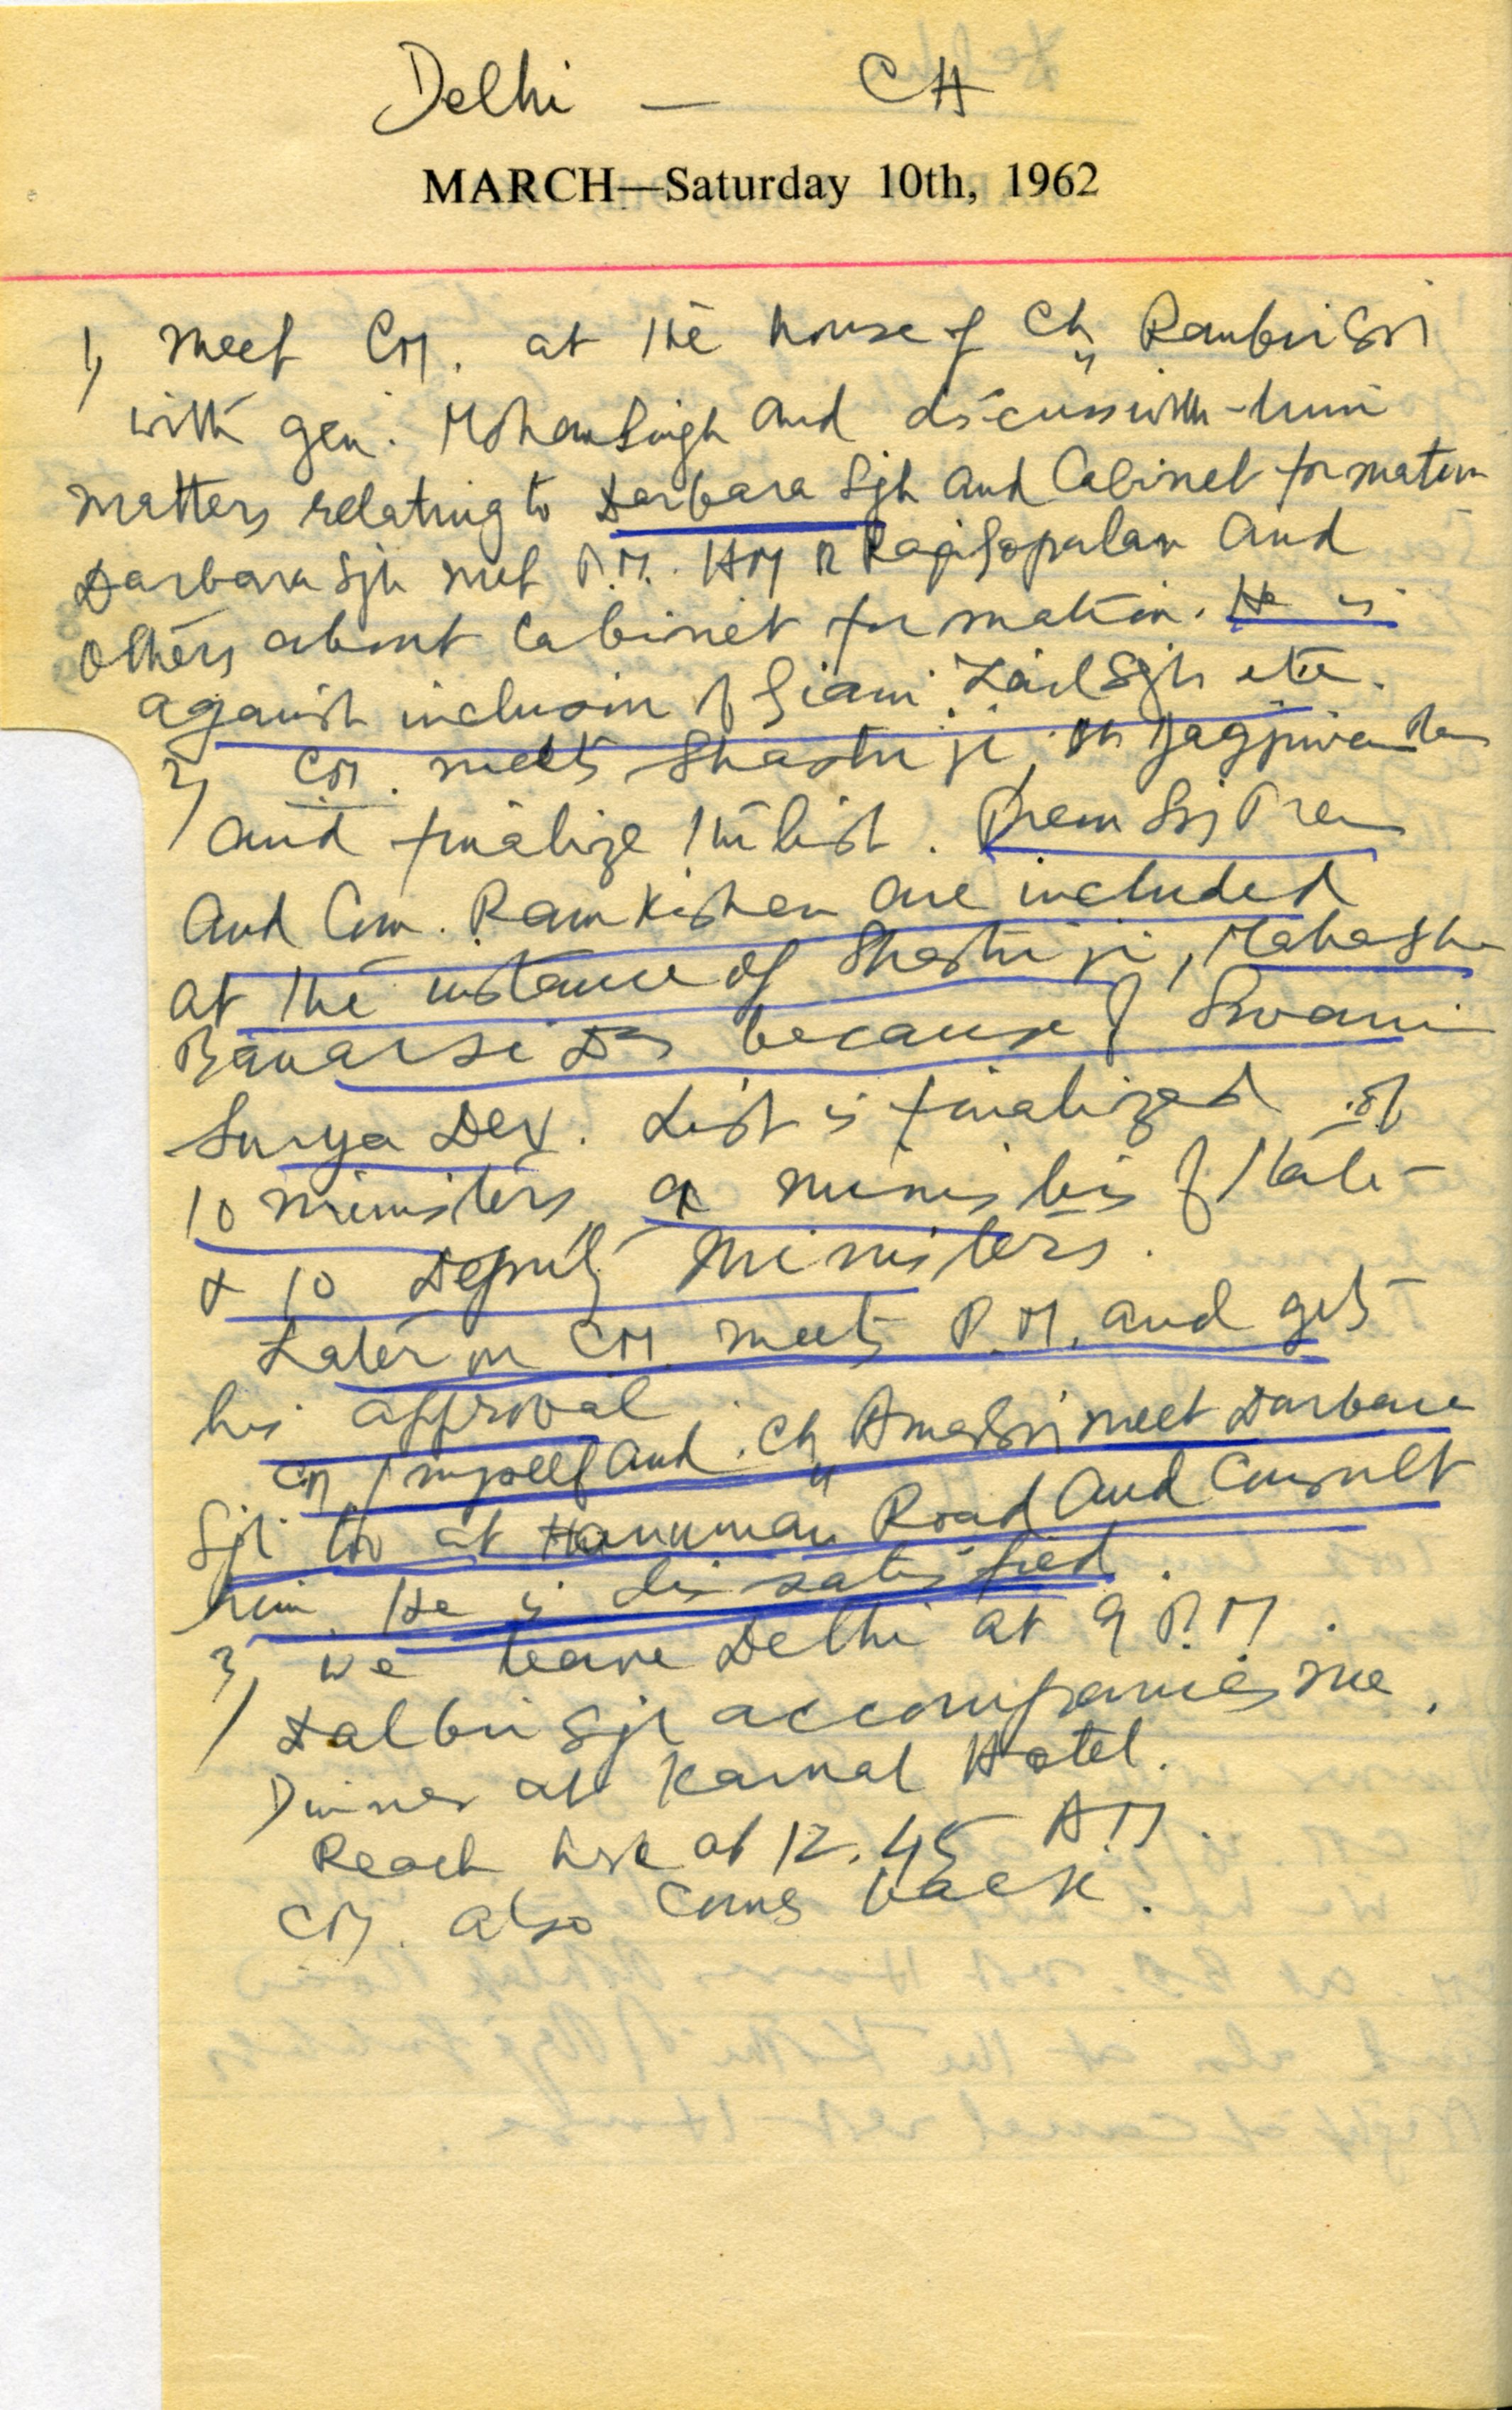 Delhi — CH
MARCH—Saturday 10th, 1962
1) Meet CM. at the house of Ch. Ranbir
with gen. Mohan Singh and discuss with him
matters relating to Darbara Sgh and Cabinet formation
Darbara Sgh met P.M. HM and
others about Cabinet formation. He is
against inclusion of Giani Zail Sgh etc.
2) CM. meets Shastri ji, Jagjiwan Ram
and finalize the list. Prem Prem
and Com. Ram Kishan are included
at the instance of Shastri ji, Mahasha
Banarsi Das because of Swami
Surya Dev. List is finalized of
10 ministers, ministers of State
& 10 Deputy Ministers.
Later on CM meets P.M. and gets
his approval
CM, myself and Ch. meet Darbara
Sgh at Hanuman Road and Consult
him. He is dissatisfied.
3) We leave Delhi at 9 P.M.
Dalbir Sgh accompanies me.
Dinner at Karnal Hotel.
Reach here at 12.45 AM.
CM. also comes back.